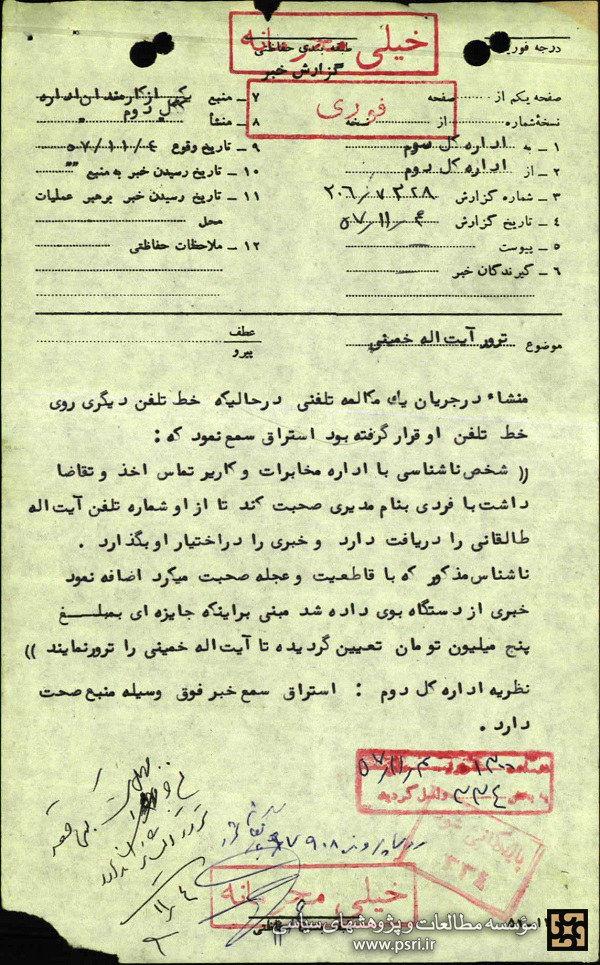 خیلی محرمانه
درجه فوریت
طبقه بندی حفاظتی
گزارش خبر
فوری
صفحه یکم از صفحه
نسخه شماره از نسخه
۱ ـ به اداره کل سوم
۲ ـ از اداره کل دوم
۳ ـ شماره گزارش ۲۰۶/۷۲۲۸
۴ ـ تاریخ گزارش ۵۷/۱۱/۴
۵ ـ پیوست
۶ ـ گیرندگان خبر
۷ ـ منبع یکی از کارمندان اداره کل دوم
۸ ـ منشأ
۹ ـ تاریخ وقوع ۵۷/۱۱/۰۴
۱۰ ـ تاریخ رسیدن خبر به منبع "
۱۱ ـ تاریخ رسیدن خبر برهبر عملیات
محل
۱۲ ـ ملاحظات حفاظتی
موضوع ترور آیت اله خمینی
عطف
پیرو
منشاء درجریان یک مکالمه تلفنی درحالیکه خط تلفن دیگری روی
خط تلفن او قرار گرفته بود استراق سمع نمود که :
(( شخص ناشناسی با اداره مخابرات و کاریر تماس اخذ و تقاضا
داشت با فردی بنام مدیری صحبت کند تا از او شماره تلفن آیت اله
طالقانی را دریافت دارد و خبری را دراختیار او بگذارد .
ناشناس مذکور که با قاطعیت و عجله صحبت میکرد اضافه نمود
خبری از دستگاه بوی داده شد مبنی براینکه جایزه ای بمبلغ
پنج میلیون تومان تعیین گردیده تا آیت اله خمینی را ترورنمایند ))
نظریه اداره کل دوم : استراق سمع خبر فوق وسیله منبع صحت
دارد .
ساعت ۱۳۰۰ مورخه ۵۷/۱۱/۴
به بخش ۳۳۴ واصل گردید
بایگانی شود
۳۳۴
خیلی محرمانه
طبقه بندی حفاظتی
مؤسسه مطالعات و پژوهشهای سیاسی
www.psri.ir